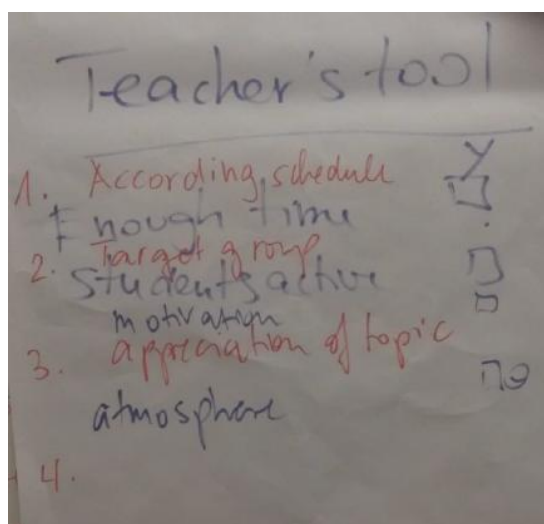 Teacher's tool
1. According schedule Y
Enough time
2. Target group
students active
motivation
3. appreciation of topic
atmosphere no
4.